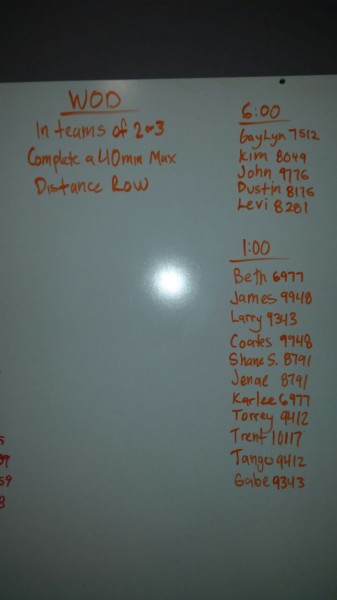 WOD
In teams of 2 or 3
Complete a 40 min Max
Distance Row
6:00
GayLyn 7512
Kim 8049
John 9776
Dustin 8176
Levi 8281
1:00
Beth 6977
James 9948
Larry 9343
Coates 9948
Shane S. 8791
Jenae 8791
Karlee 6977
Torrey 9412
Trent 10117
Tango 9412
Gabe 9343